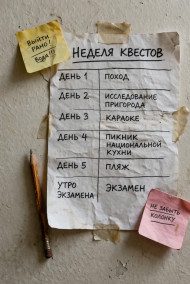 ВЫЙТИ
РАНО!
ВОДА!!!
НЕДЕЛЯ КВЕСТОВ
ДЕНЬ 1 ПОХОД
ДЕНЬ 2 ИССЛЕДОВАНИЕ
ПРИГОРОДА
ДЕНЬ 3 КАРАОКЕ
ДЕНЬ 4 ПИКНИК
НАЦИОНАЛЬНОЙ
КУХНИ
ДЕНЬ 5 ПЛЯЖ
УТРО
ЭКЗАМЕНА ЭКЗАМЕН
НЕ ЗАБЫТЬ
КОЛОНКУ